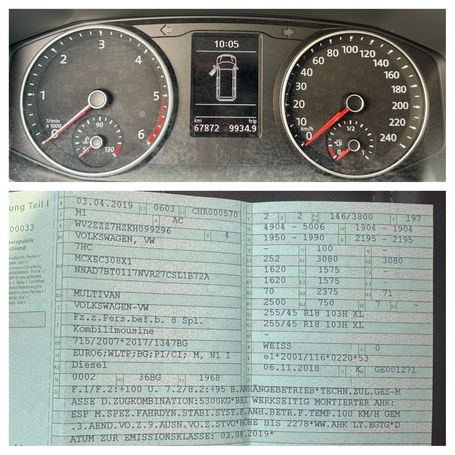 10:05
1/min
x1000
0 1 2 3 4 5 6
90
50 130
km trip
67872 9934.9
km/h
0 10 20 30 40 60 80 100 120 140 160 180 200 220 240
1/2
0 1
ung Teil I
00033
03.04.2019 0603 CHR000570
M1 AC
WV2ZZZ7HZKH099296 4
VOLKSWAGEN, VW
7HC
MCXEC308X1
NNAD7BT0117NVR27CSL1B72A
MULTIVAN
VOLKSWAGEN-VW
Fz.z.Pers.bef.b. 8 Spl.
Kombilimousine
715/2007*2017/1347BG
EURO6;WLTP;BG;PI/CI; M, N1 I
Diesel
0002 36BG 1968
2 2 146/3800 197
4904 - 5006 1904 - 1904
1950 - 1990 2195 - 2195
- 100 -
252 3080 3080
1620 1575 -
1620 1575 -
70 2375 71
2500 750 7
255/45 R18 103H XL
255/45 R18 103H XL
-
WEISS 0
e1*2001/116*0220*53
06.11.2018 K GE001271
F.1/F.2:+100 U. 7.2/8.2:+95 B.ANHÄNGEBETRIEB*TECHN.ZUL.GES-M
ASSE D.ZUGKOMBINATION:5300KG*BEI WERKSEITIG MONTIERTER AHK:
ESP M.SPEZ.FAHRDYN.STABI.SYST.F.ANH.BETR.F.TEMP.100 KM/H GEM
.3.AEND.VO.Z.9.AUSN.VO.Z.STVO*HÖHE BIS 2278*WW.AHK LT.EGTG*D
ATUM ZUR EMISSIONSKLASSE: 03.04.2019*